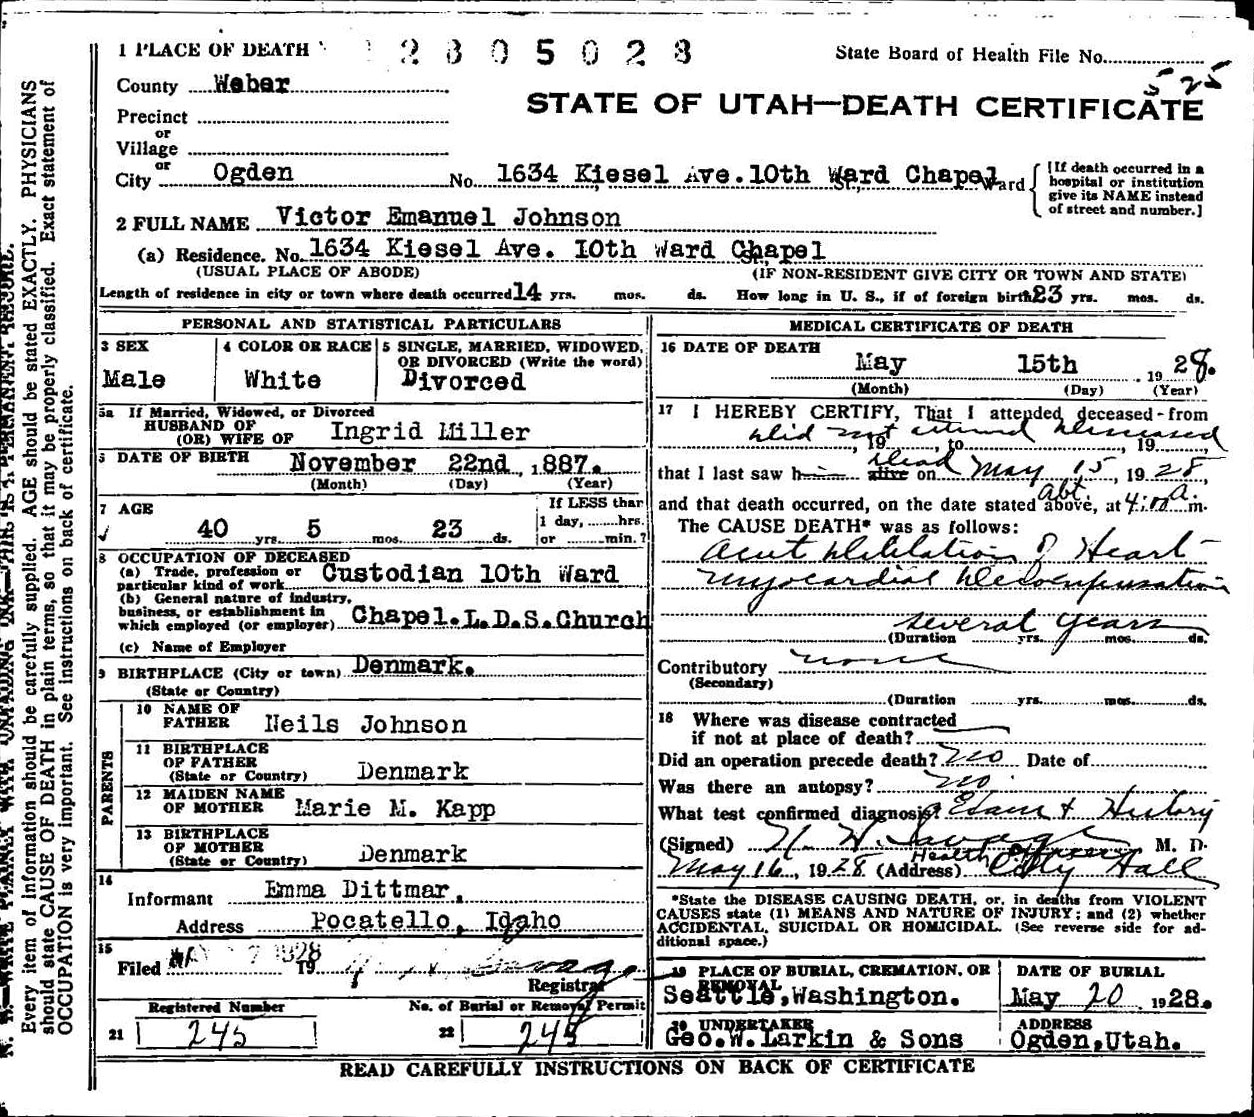 1 PLACE OF DEATH 2805028 State Board of Health File No.
525
County Weber
STATE OF UTAH—DEATH CERTIFICATE
Precinct
or
Village
or
City Ogden No. 1634 Kiesel Ave. 10th Ward Chapel St., Ward
[If death occurred in a hospital or institution give its NAME instead of street and number.]
2 FULL NAME Victor Emanuel Johnson
(a) Residence. No. 1634 Kiesel Ave. 10th Ward Chapel St.
(USUAL PLACE OF ABODE) (IF NON-RESIDENT GIVE CITY OR TOWN AND STATE)
Length of residence in city or town where death occurred 14 yrs. mos. ds. How long in U. S., if of foreign birth? 23 yrs. mos. ds.
PERSONAL AND STATISTICAL PARTICULARS
3 SEX
Male
4 COLOR OR RACE
White
5 SINGLE, MARRIED, WIDOWED,
OR DIVORCED (Write the word)
Divorced
5a If Married, Widowed, or Divorced
HUSBAND OF
(OR) WIFE OF Ingrid Miller
6 DATE OF BIRTH November 22nd, 1887.
(Month) (Day) (Year)
7 AGE
40 yrs. 5 mos. 23 ds.
If LESS than
1 day, ......hrs.
or ......min.?
8 OCCUPATION OF DECEASED
(a) Trade, profession or
particular kind of work Custodian 10th Ward
(b) General nature of industry,
business, or establishment in
which employed (or employer) Chapel.L.D.S.Church
(c) Name of Employer
9 BIRTHPLACE (City or town) Denmark.
(State or Country)
PARENTS
10 NAME OF
FATHER Neils Johnson
11 BIRTHPLACE
OF FATHER
(State or Country) Denmark
12 MAIDEN NAME
OF MOTHER Marie M. Kapp
13 BIRTHPLACE
OF MOTHER
(State or Country) Denmark
14
Informant Emma Dittmar,
Address Pocatello, Idaho
15
Filed MAY 1928 19
Registrar
Registered Number
21 245
No. of Burial or Removal Permit
22 245
MEDICAL CERTIFICATE OF DEATH
16 DATE OF DEATH
May 15th, 1928.
(Month) (Day) (Year)
17 I HEREBY CERTIFY, That I attended deceased from
did not attend deceased
19 , to 19
that I last saw him alive dead on May 15, 1928,
and that death occurred, on the date stated above, at abt. 4:00 a. m.
The CAUSE DEATH* was as follows:
Acut Dilelation of Heart
Myocardial Decompensation
several years
(Duration yrs. mos. ds.
Contributory none
(Secondary)
(Duration yrs. mos. ds.
18 Where was disease contracted
if not at place of death?
Did an operation precede death? no Date of
Was there an autopsy? no
What test confirmed diagnosis? Exam & History
(Signed) H. W. Savage M. D.
Health Officer
May 16, 1928 (Address) City Hall
*State the DISEASE CAUSING DEATH, or, in deaths from VIOLENT
CAUSES state (1) MEANS AND NATURE OF INJURY; and (2) whether
ACCIDENTAL, SUICIDAL OR HOMICIDAL. (See reverse side for ad-
ditional space.)
19 PLACE OF BURIAL, CREMATION, OR
REMOVAL
Seattle, Washington.
DATE OF BURIAL
May 20 1928.
20 UNDERTAKER
Geo.W.Larkin & Sons
ADDRESS
Ogden,Utah.
READ CAREFULLY INSTRUCTIONS ON BACK OF CERTIFICATE
N. B.—WRITE PLAINLY WITH UNFADING INK—THIS IS A PERMANENT RECORD.
Every item of information should be carefully supplied. AGE should be stated EXACTLY. PHYSICIANS
should state CAUSE OF DEATH in plain terms, so that it may be properly classified. Exact statement of
OCCUPATION is very important. See instructions on back of certificate.